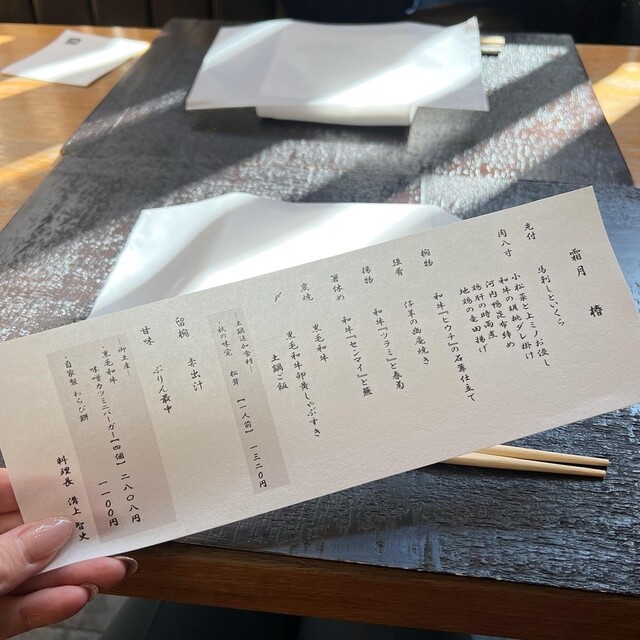 霜月　椿
先付
馬刺しといくら
肉八寸
小松菜と上ミノお浸し
和牛の胡桃ダレ掛け
河内鴨昆布締め
鶏肝の時雨煮
地鶏の竜田揚げ
椀物
和牛『ヒウチ』の石算仕立て
強肴
仔羊の幽庵焼き
揚物
和牛『ツラミ』と春菊
箸休め
和牛『センマイ』と蕪
炭焼
黒毛和牛
〃
黒毛和牛卵黄しゃぶすき
土鍋ご飯
土鍋追加食材
・秋の味覚　松茸【一人前】一三二〇円
留椀
赤出汁
甘味
ぷりん最中
御土産
・黒毛和牛
味噌カツミニバーガー【四個】二八〇八円
・自家製 わらび餅　一一〇〇円
料理長　溝上　智史